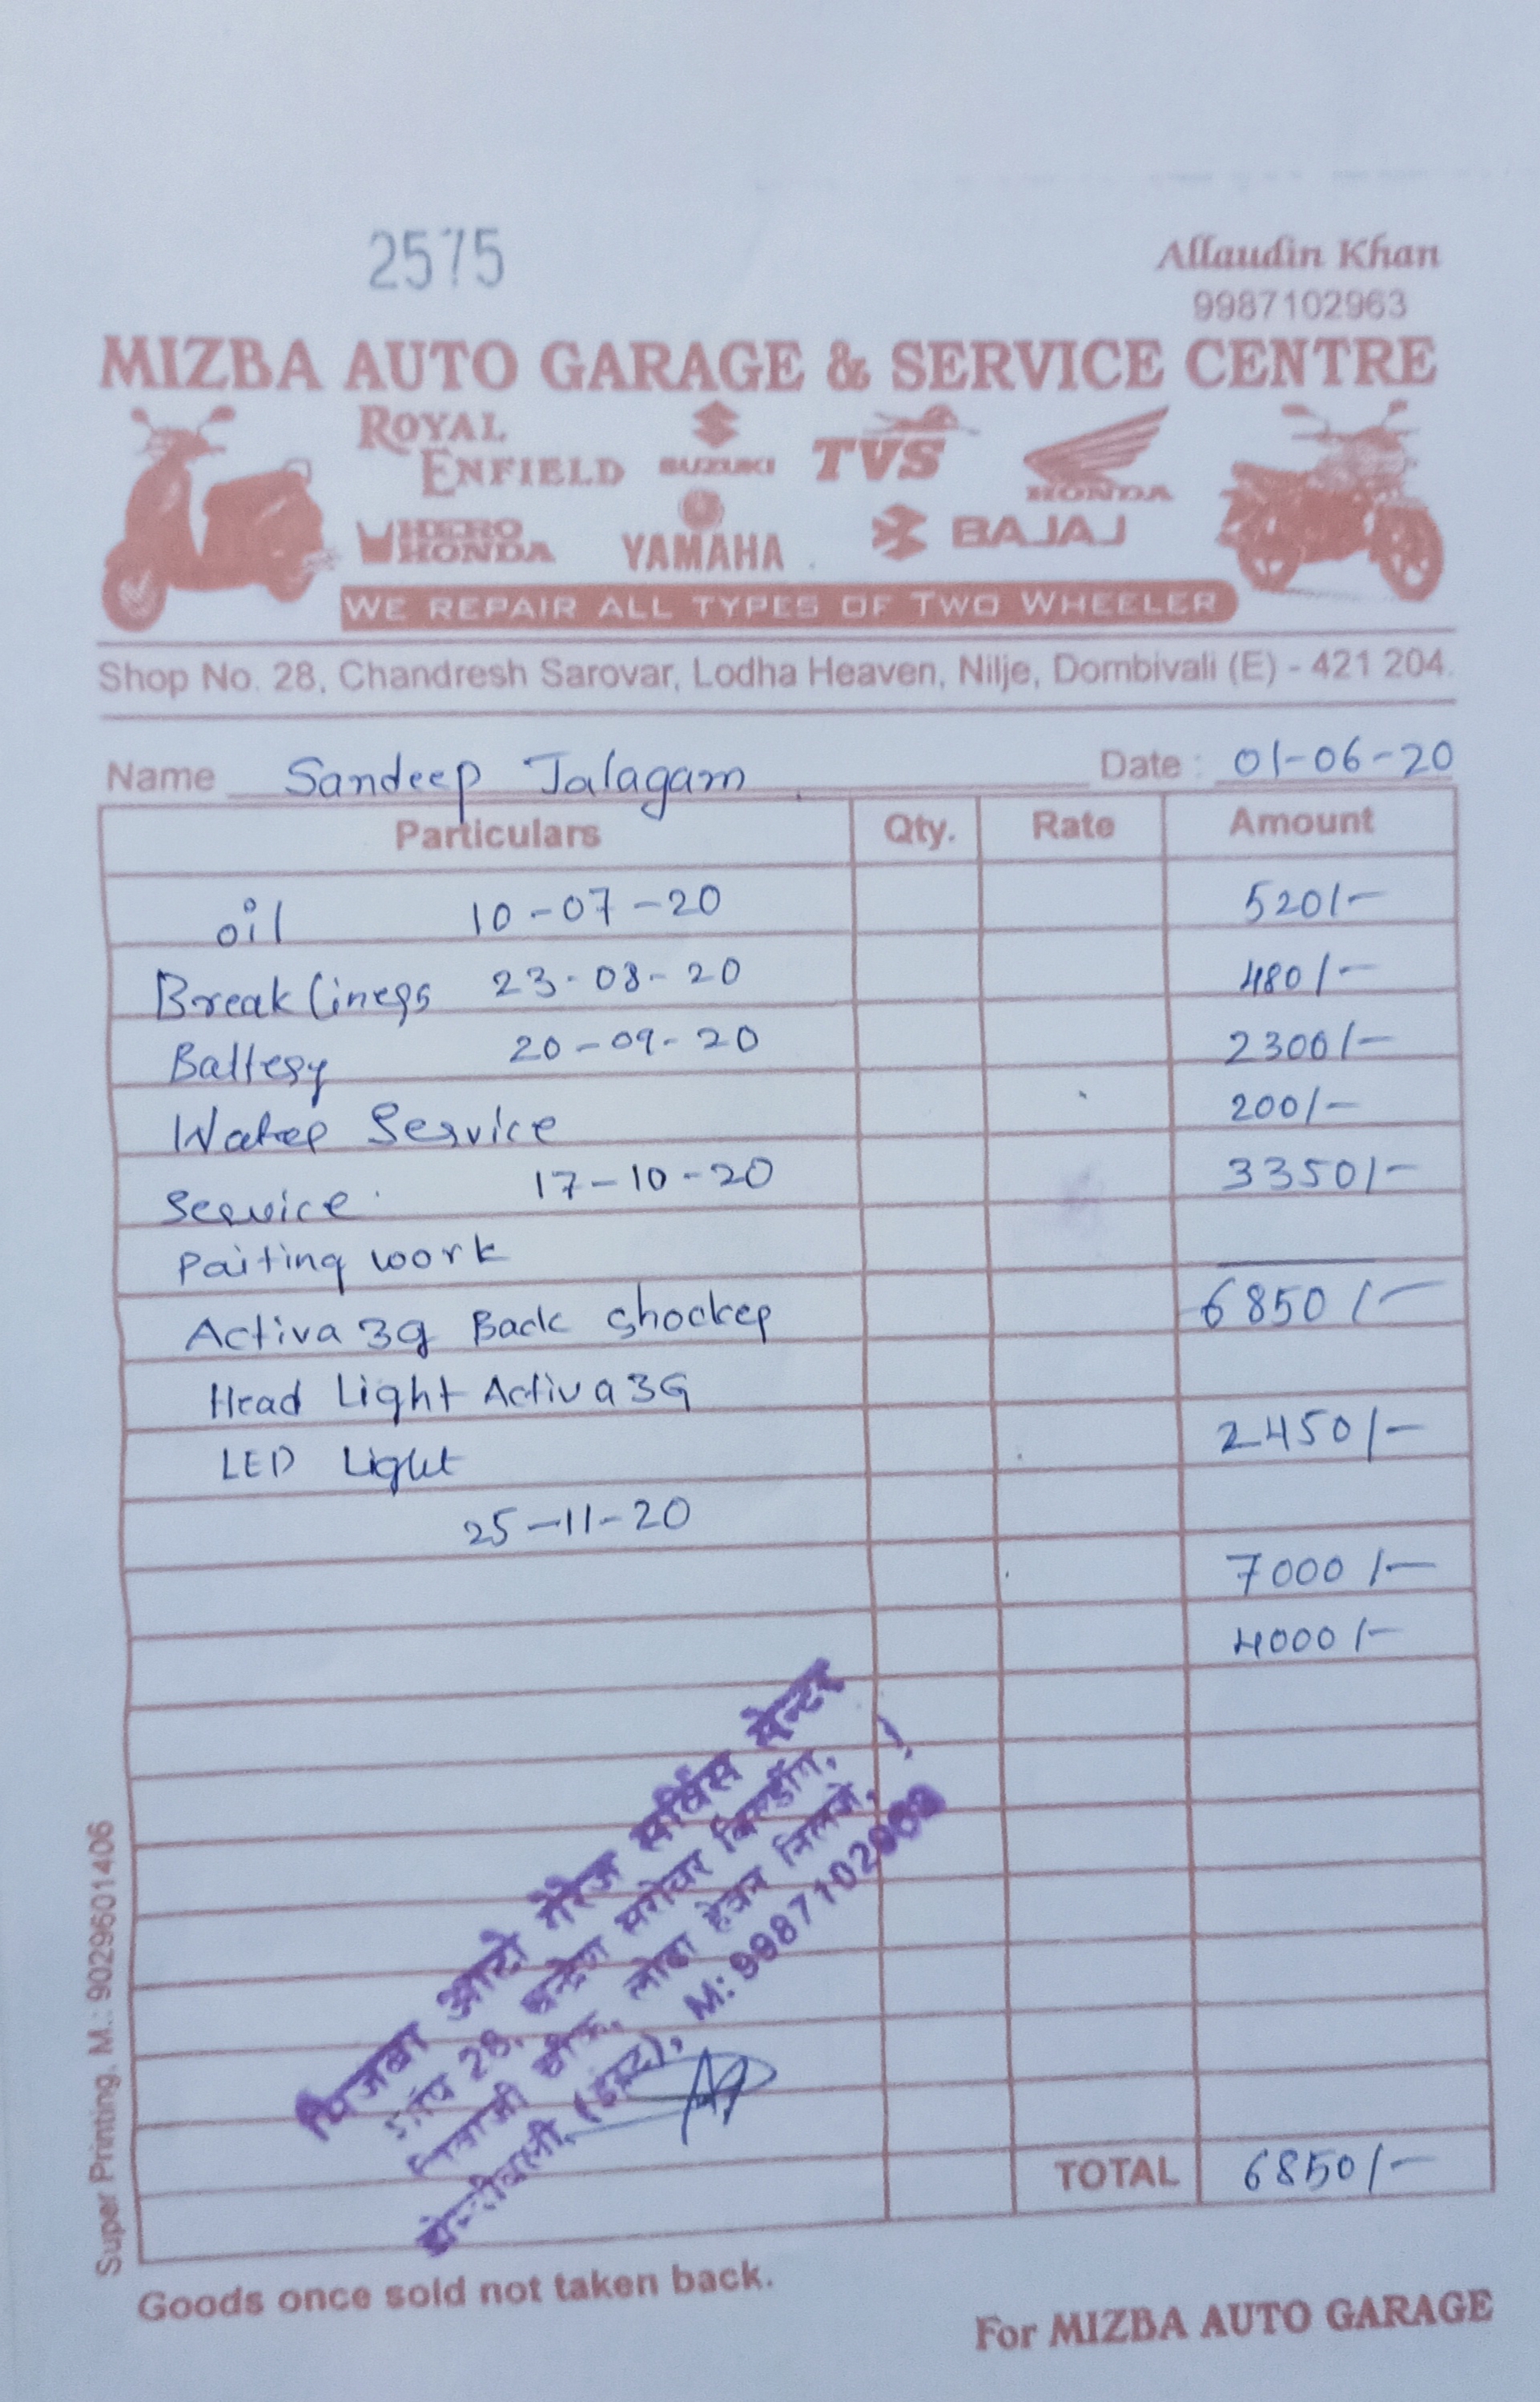 2575
Allaudin Khan
9987102963
MIZBA AUTO GARAGE & SERVICE CENTRE
ROYAL ENFIELD SUZUKI TVS HONDA
HERO HONDA YAMAHA BAJAJ
WE REPAIR ALL TYPES OF TWO WHEELER
Shop No. 28, Chandresh Sarovar, Lodha Heaven, Nilje, Dombivali (E) - 421 204.
Name Sandeep Jalagam Date : 01-06-20
Particulars Qty. Rate Amount
oil 10-07-20 520/-
Break linegs 23-08-20 480/-
Battery 20-09-20 2300/-
Water Service 200/-
Service 17-10-20 3350/-
Paiting work
Activa 3g Back shocker 6850/-
Head Light Activa 3G
LED Light 2450/-
25-11-20
7000/-
4000/-
मिजबा आटो गॅरेज सर्विस सेन्टर
शॉप 28, चन्द्रेश सरोवर बिल्डींग,
शिवाजी चौक, लोढा हेवन निलजे,
डोम्बीवली (ईस्ट), M: 9987102963
TOTAL 6850/-
Goods once sold not taken back.
For MIZBA AUTO GARAGE
Super Printing. M.: 9029601406